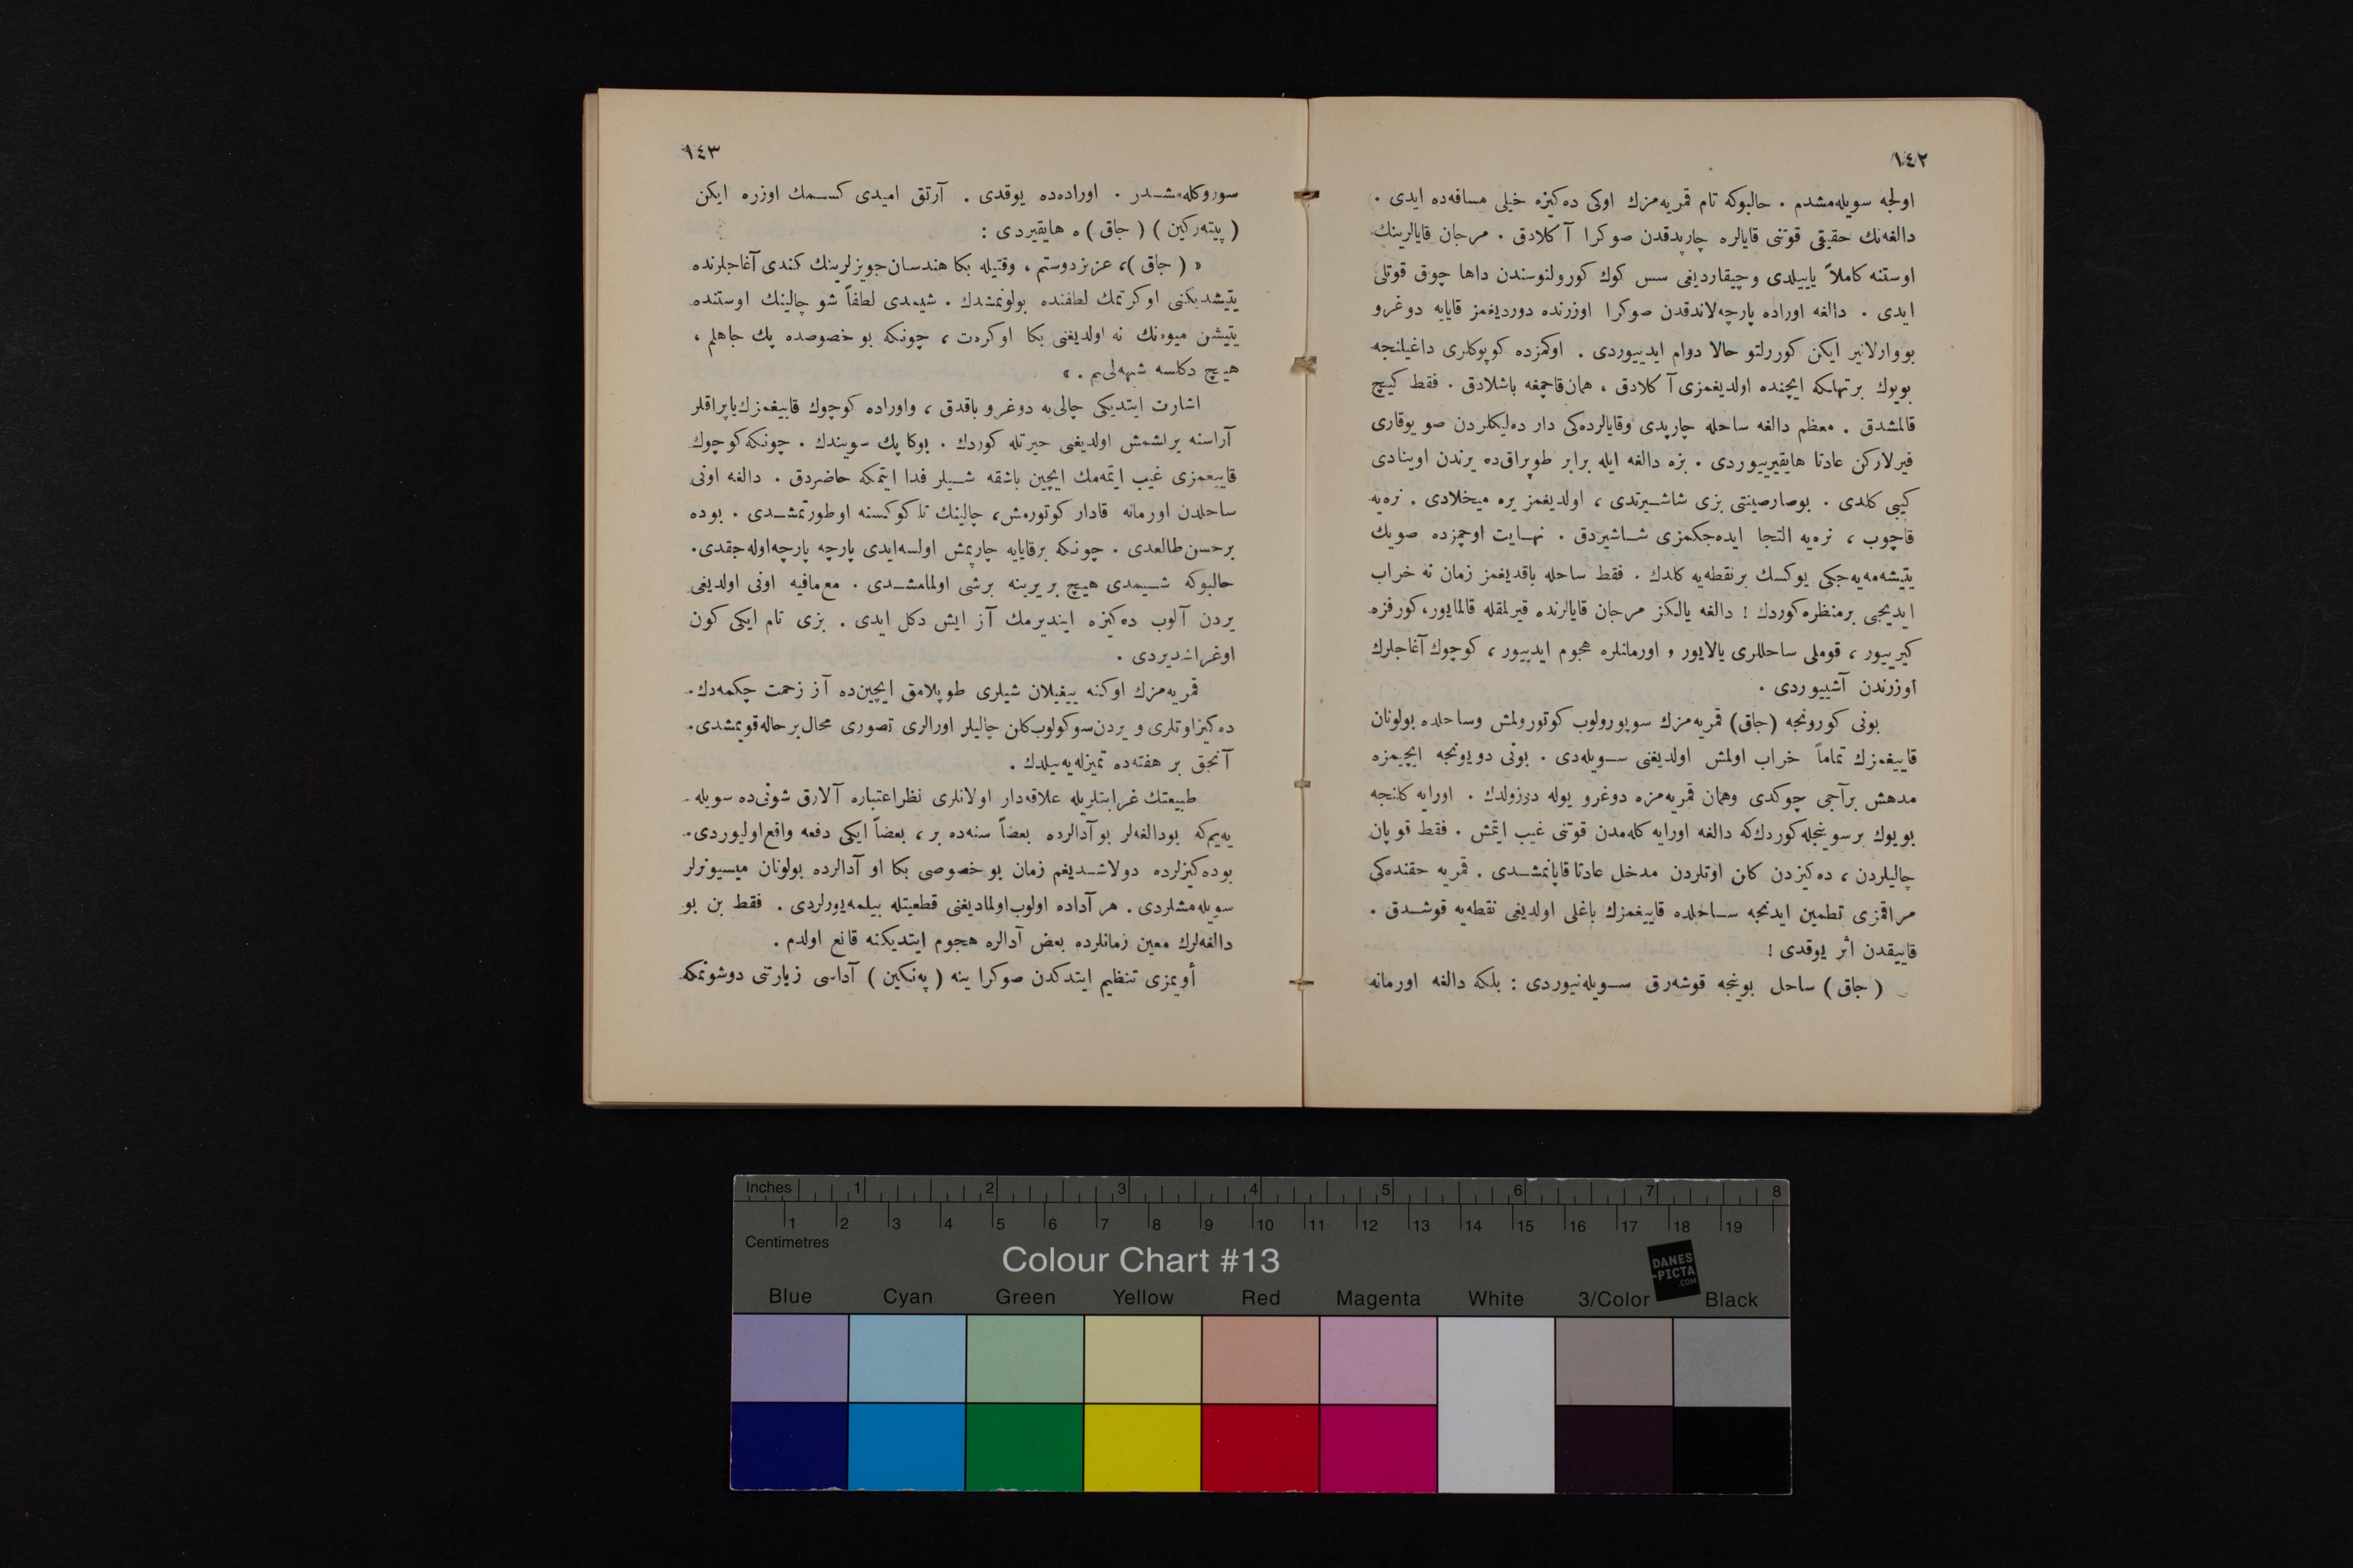 ١٤٢
اولجه سویله‌مشدم . حالبوكه تام قمریه‌مزك اوكی ده‌كیزه خیلی مسافه‌ده ایدی .
دالغه‌نك حقیقی قوتنی قایالره چارپدقدن صوكرا آكلادق . مرجان قایالرینك
اوستنه كاملاً یاییلدی وچیقاردیغی سس كوك كورولتوسندن داها چوق قوتلی
ایدی . دالغه اوراده پارچه‌لاندقدن صوكرا اوزرنده دوردیغمز قایایه دوغرو
یووارلانیر ایكن كوررلتو حالا دوام ایدییوردی . اوكمزده كوپوكلری داغیلنجه
بویوك برتهلكه ایچنده اولدیغمزی آكلادق ، همان قاچمغه باشلادق . فقط كیچ
قالمشدق . معظم دالغه ساحله چارپدی وقایالرده‌كی دار ده‌لیكلردن صو یوقاری
فیرلاركن عادتا هایقیرییوردی . بزه دالغه ایله برابر طوپراق‌ده یرندن اوینادی
كیبی كلدی . بوصارصینتی بزی شاشیرتدی ، اولدیغمز یره میخلادی . نره‌یه
قاچوب ، نره‌یه التجا ایده‌جكمزی شاشیردق . نهایت اوچمزده صویك
یتیشه‌مه‌یه‌جكی یوكسك برنقطه‌یه كلدك . فقط ساحله باقدیغمز زمان نه خراب
ایدیجی برمنظره كوردك ! دالغه یالكز مرجان قایالرنده قیرلمقله قالمایور، كورفزه
كیرییور ، قوملی ساحللری یالایور و اورمانلره هجوم ایدییور ، كوچوك آغاجلرك
اوزرندن آشییوردی .
بونی كورونجه (جاق) قمریه‌مزك سوپورولوب كوتورولمش وساحلده بولونان
قاییغمزك تماماً خراب اولمش اولدیغنی سویله‌دی . بونی دویونجه ایچیمزه
مدهش برآجی چوكدی وهمان قمریه‌مزه دوغرو یوله دوزولدك . اورایه كلنجه
بویوك برسوینجله كوردك‌كه دالغه اورایه كله‌مدن قوتنی غیب ایتمش . فقط قوپان
چالیلردن ، ده‌كیزدن كلن اوتلردن مدخل عادتا قاپانمشدی . قمریه حقنده‌كی
مراقمزی تطمین ایدنجه ساحلده قاییغمزك باغلی اولدیغی نقطه‌یه قوشدق .
قاییقدن اثر یوقدی !
(جاق) ساحل بوینجه قوشه‌رق سویله‌نیوردی : بلكه دالغه اورمانه
١٤٣
سوروكله‌مشدر . اوراده‌ده یوقدی . آرتق امیدی كسمك اوزره ایكن
(پیته‌ركین) (جاق) ه هایقیردی :
« (جاق)، عزیزدوستم ، وقتیله بكا هندسان‌جویزلرینك كندی آغاجلرنده
یتیشدیكنی اوكرتمك لطفنده بولونمشدك . شیمدی لطفاً شو چالینك اوستنده
یتیشن میوه‌نك نه اولدیغنی بكا اوكرەت ، چونكه بو خصوصده پك جاهلم ،
هیچ دكلسه شبهه‌لی‌یم . »
اشارت ایتدیكی چالی‌یه دوغرو باقدق ، واوراده كوچوك قاییغمزك یاپراقلر
آراسنه یرلشمش اولدیغنی حیرتله كوردك . بوكا پك سویندك . چونكه كوچوك
قاییغمزی غیب ایتمه‌مك ایچین باشقه شیلر فدا ایتمكه حاضردق . دالغه اونی
ساحلدن اورمانه قادار كوتورمش، چالینك تا كوكسنه اوطورتمشدی . بوده
برحسن طالعدی . چونكه برقایایه چارپمش اولسه‌ایدی پارچه پارچه‌اوله‌جقدی.
حالبوكه شیمدی هیچ بر یرینه برشی اولمامشدی . مع‌مافیه اونی اولدیغی
یردن آلوب ده‌كیزه ایندیرمك آز ایش دكل ایدی . بزی تام ایكی كون
اوغراشدیردی .
قمریه‌مزك اوكنه ییغیلان شیلری طوپلامق ایچین‌ده آز زحمت چكمه‌دك.
ده‌كیزاوتلری و یردن‌سوكولوب‌كلن چالیلر اورالری تصوری محال‌برحاله‌قویمشدی.
آنجق بر هفته‌ده تمیزله‌یه‌بیلدك .
طبیعتك غرابتلریله علاقه‌دار اولانلری نظراعتباره آلارق شونی‌ده سویله-
یه‌یم‌كه بودالغه‌لر بو آدالرده بعضاً سنه‌ده بر ، بعضاً ایكی دفعه واقع‌اولیوردی.
بوده‌كیزلرده دولاشدیغم زمان بو خصوصی بكا او آدالرده بولونان میسیونرلر
سویله‌مشلردی . هر آداده اولوب‌اولمادیغنی قطعیتله بیلمه‌یورلردی . فقط بن بو
دالغه‌لرك معین زمانلرده بعض آدالره هجوم ایتدیكنه قانع اولدم .
أویمزی تنظیم ایتدكدن صوكرا ینه (په‌نكین) آداسی زیارتنی دوشونمكه
Inches 1 2 3 4 5 6 7 8
1 2 3 4 5 6 7 8 9 10 11 12 13 14 15 16 17 18 19
Centimetres
Colour Chart #13
DANES-PICTA.COM
Blue Cyan Green Yellow Red Magenta White 3/Color Black